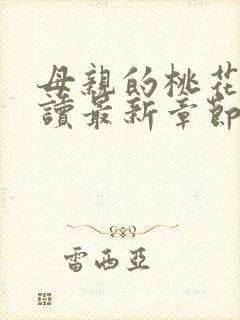 母親的桃花
讀最新章節
雷西亞